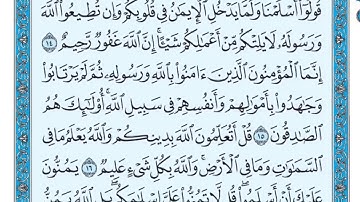 قُولُوٓا۟ أَسْلَمْنَا وَلَمَّا يَدْخُلِ ٱلْإِيمَـٰنُ فِى قُلُوبِكُمْ ۖ وَإِن تُطِيعُوا۟ ٱللَّهَ
وَرَسُولَهُۥ لَا يَلِتْكُم مِّنْ أَعْمَـٰلِكُمْ شَيْـًٔا ۚ إِنَّ ٱللَّهَ غَفُورٌ رَّحِيمٌ ١٤
إِنَّمَا ٱلْمُؤْمِنُونَ ٱلَّذِينَ ءَامَنُوا۟ بِٱللَّهِ وَرَسُولِهِۦ ثُمَّ لَمْ يَرْتَابُوا۟
وَجَـٰهَدُوا۟ بِأَمْوَٰلِهِمْ وَأَنفُسِهِمْ فِى سَبِيلِ ٱللَّهِ ۚ أُو۟لَـٰٓئِكَ هُمُ
ٱلصَّـٰدِقُونَ ١٥ قُلْ أَتُعَلِّمُونَ ٱللَّهَ بِدِينِكُمْ وَٱللَّهُ يَعْلَمُ مَا فِى
ٱلسَّمَـٰوَٰتِ وَمَا فِى ٱلْأَرْضِ ۚ وَٱللَّهُ بِكُلِّ شَىْءٍ عَلِيمٌ ١٦ يَمُنُّونَ
عَلَيْكَ أَنْ أَسْلَمُوا۟ ۖ قُل لَّا تَمُنُّوا۟ عَلَىَّ إِسْلَـٰمَكُم ۖ بَلِ ٱللَّهُ يَمُنُّ